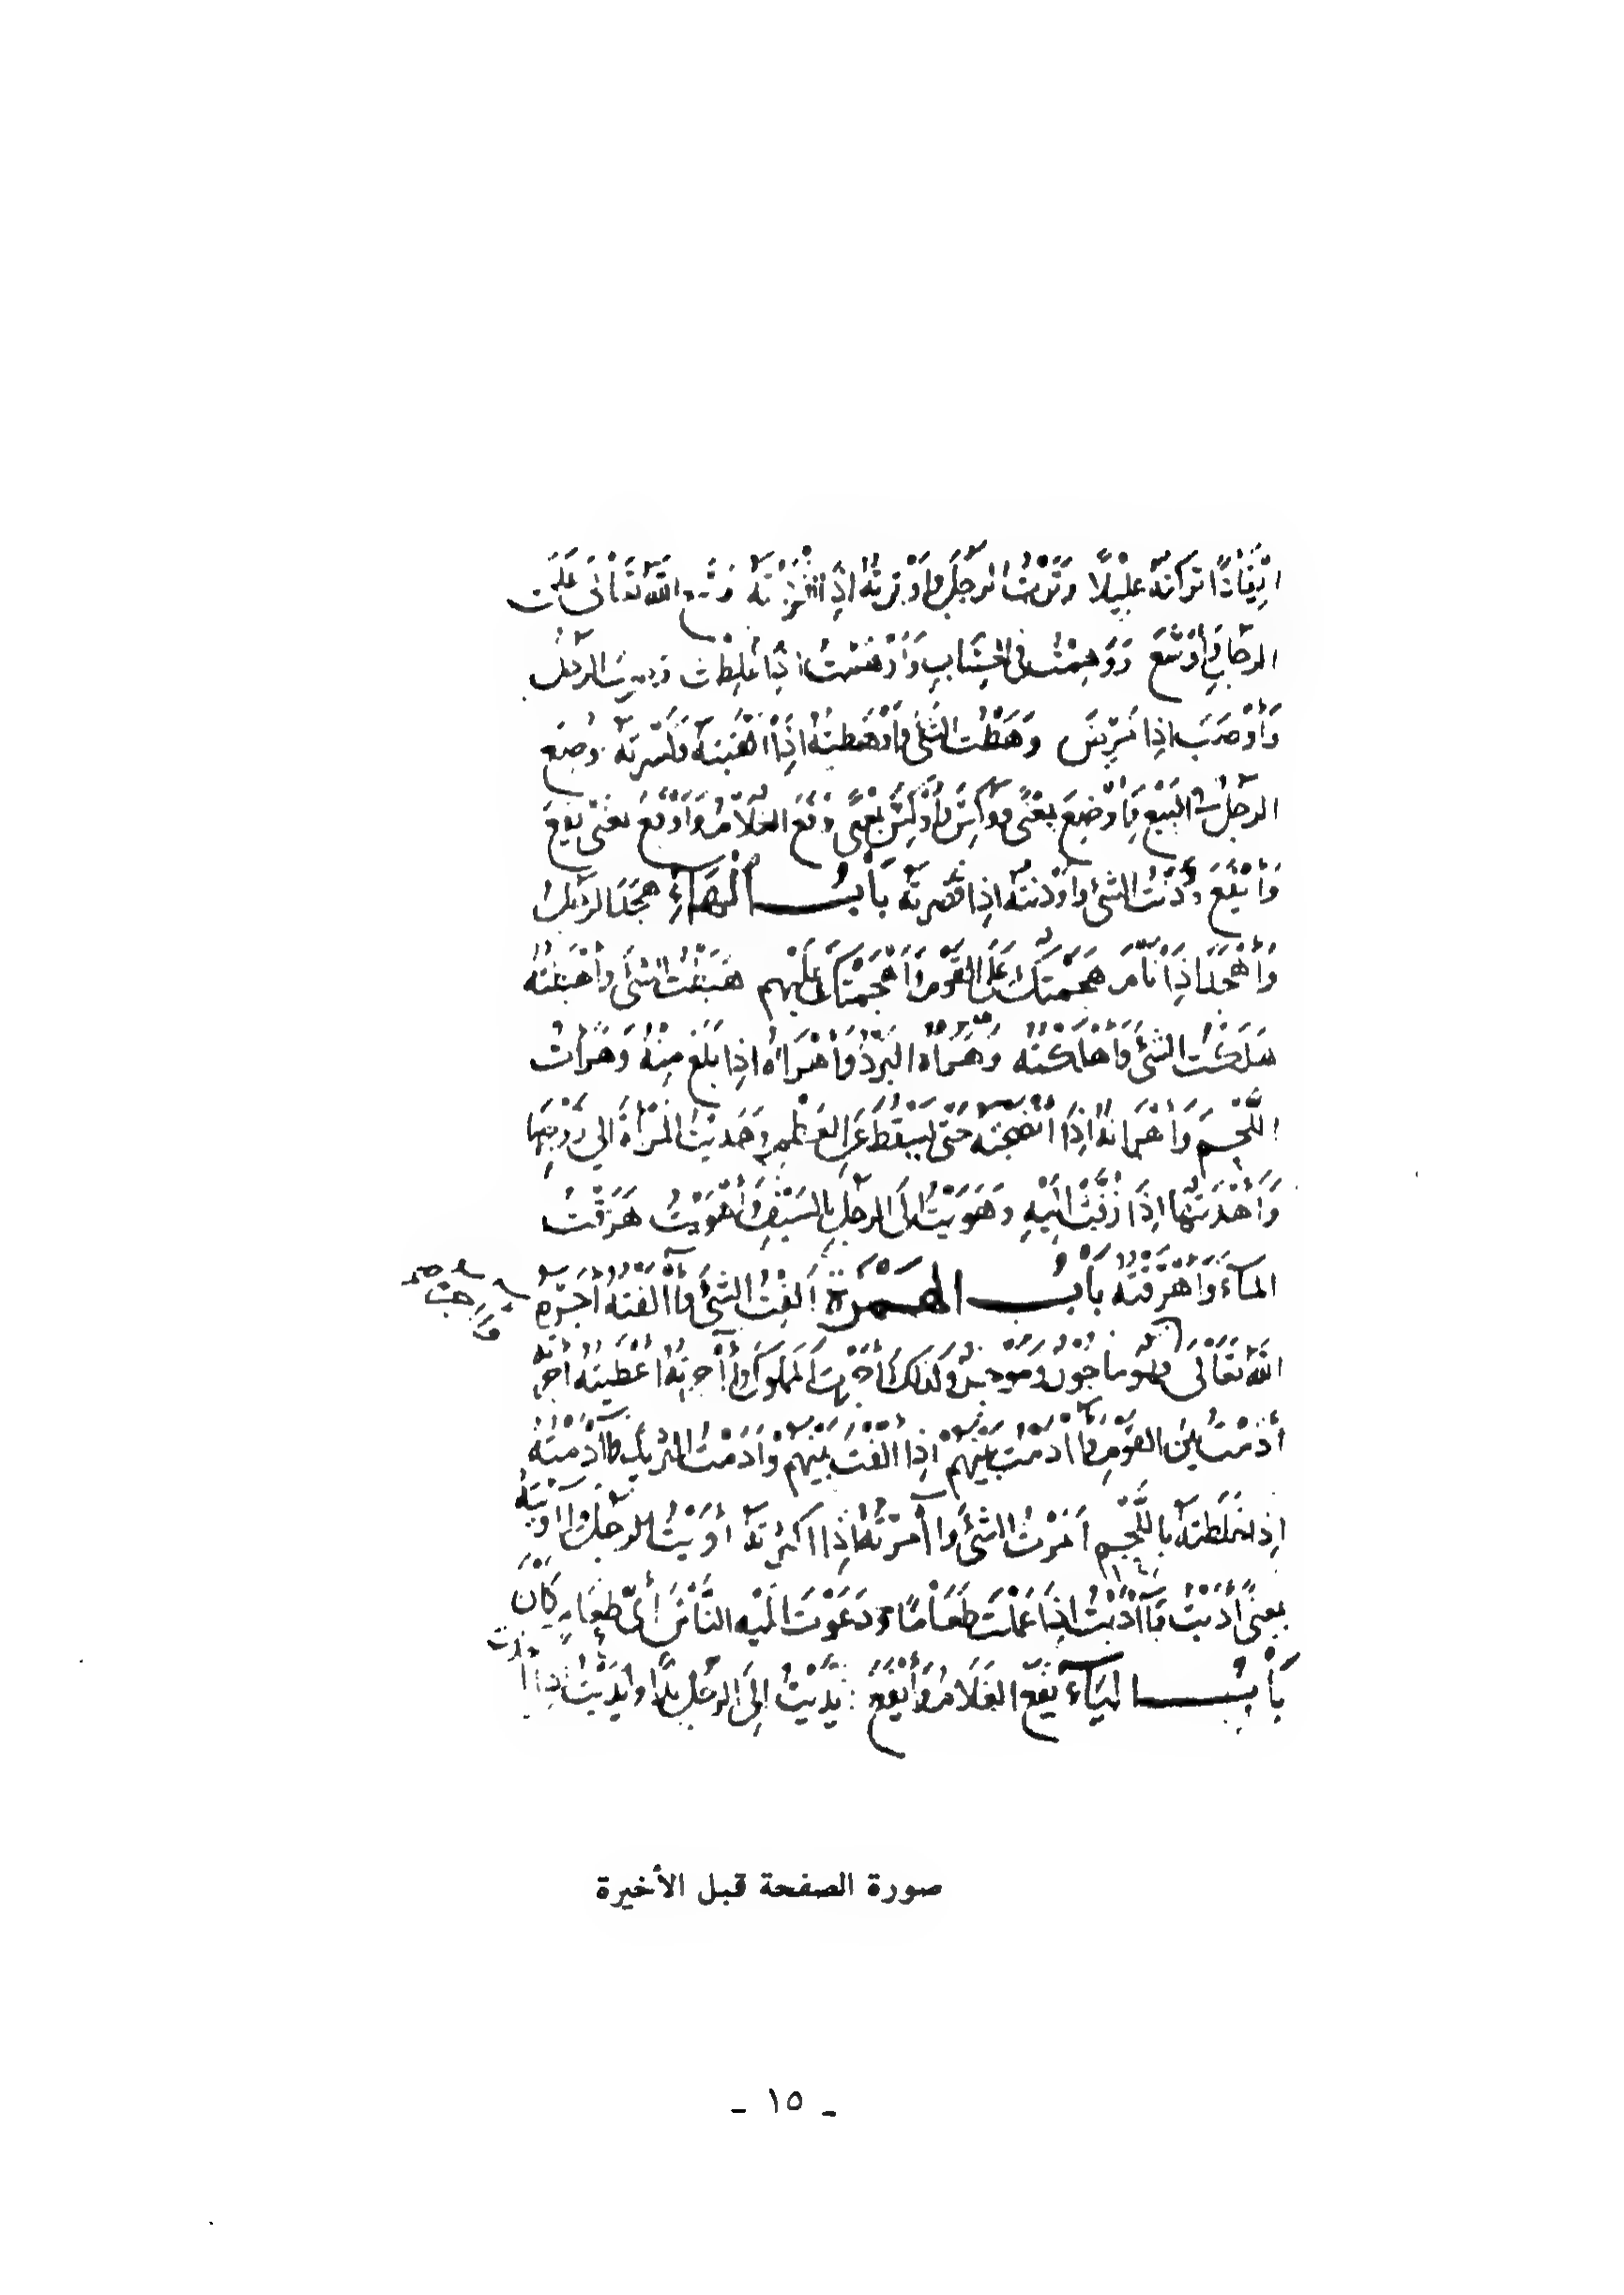 إِيقَاذًا تركته عليلًا وَتَرْتُ الرجلَ وأَوْترتُه إذا أفزعته وَسَّعَ اللَّه تعالى على
الرجل وأَوْسَعَ وَوَهِمْتُ في الحِسَابِ وَأَوْهَمْتُ إذا غلِطت وَصِبَ الرجلُ
وَأَوْصَبَ إذا مَرِضَ وَهَطْتُ الشيءَ وأَوْهَطتُه إذا أضعفته وكسرته وضِعَ
الرجلُ في البَيْعِ وأُوْضِعَ بمعنًى ووُكِسَ وأُوْكِسَ بمعنًى وَفَعَ الغلامُ وَأَوْفَعَ بمعنى يفع
وَأَيْفَعَ وَدَنْتُ الشيءَ وأَوْدَنتُه إذا قصرته بَابُ الْهَاءِ هَجَدَ الرجلُ
وَأَهْجَدَ إذا نام هجمتك على القومِ وَأَهْجَمْتُكَ عليهم هَبَطْتُ الشيءَ وأَهْبَطتُه
هَلَكْتُ الشيءَ وأَهْلكتُه وَهَرَأه البَرْدُ وَأَهْرَأه إذا بَلَغَ مِنْهُ وَهَرأتُ
اللَّحْمَ وَأَهْرأته إذا أنضجته حتى يَسْقُطَ عن العَظْمِ وهَدَيْتُ المَرْأةَ إلى زوجِها
وَأَهْدَيْتُها إذا زُفَّتْ إليهِ وهَوَيْتُ إلى الرجلِ بالسَيْفِ وأَهْوَيْتُ هَرَقْتُ
الماءَ وَأَهْرَقْتُه بَابُ الهَمْزَة أَلِفْتُ الشيءَ وآلَفْتُه أَجَرَهُ
اللَّه تعالى فهو مأجُورٌ ومُوجَرٌ وكذلك أَجَرْتُ المملوكَ وآجرتُه أعْطَيته أجرته
أَدَمْتُ بينَ القومِ وآدَمْتُ بينهم إذا ألَّفْتَ بينهم وأَدَمْتُ الثريدَ وآدَمْتُه
إذا خلطته باللَّحْمِ أَمَرْتُ الشيءَ وآمَرْتُه إذا أكثرته أَوَيْتُ الرجلَ وآوَيْتُه
بمعنًى أَدَبْتُ وآدَبْتُ إذا عَمِلْتَ طَعَامًا ودَعَوْتَ إليه النَّاسَ أيّ طعام كَانَ
بَابُ اليَاءِ يَفَعَ الغُلَامُ وأَيْفَعَ يَدَيْتُ إلى الرجل يدًا وأَيْدَيْتُ إذا
صورة الصفحة قبل الأخيرة
- ١٥ -